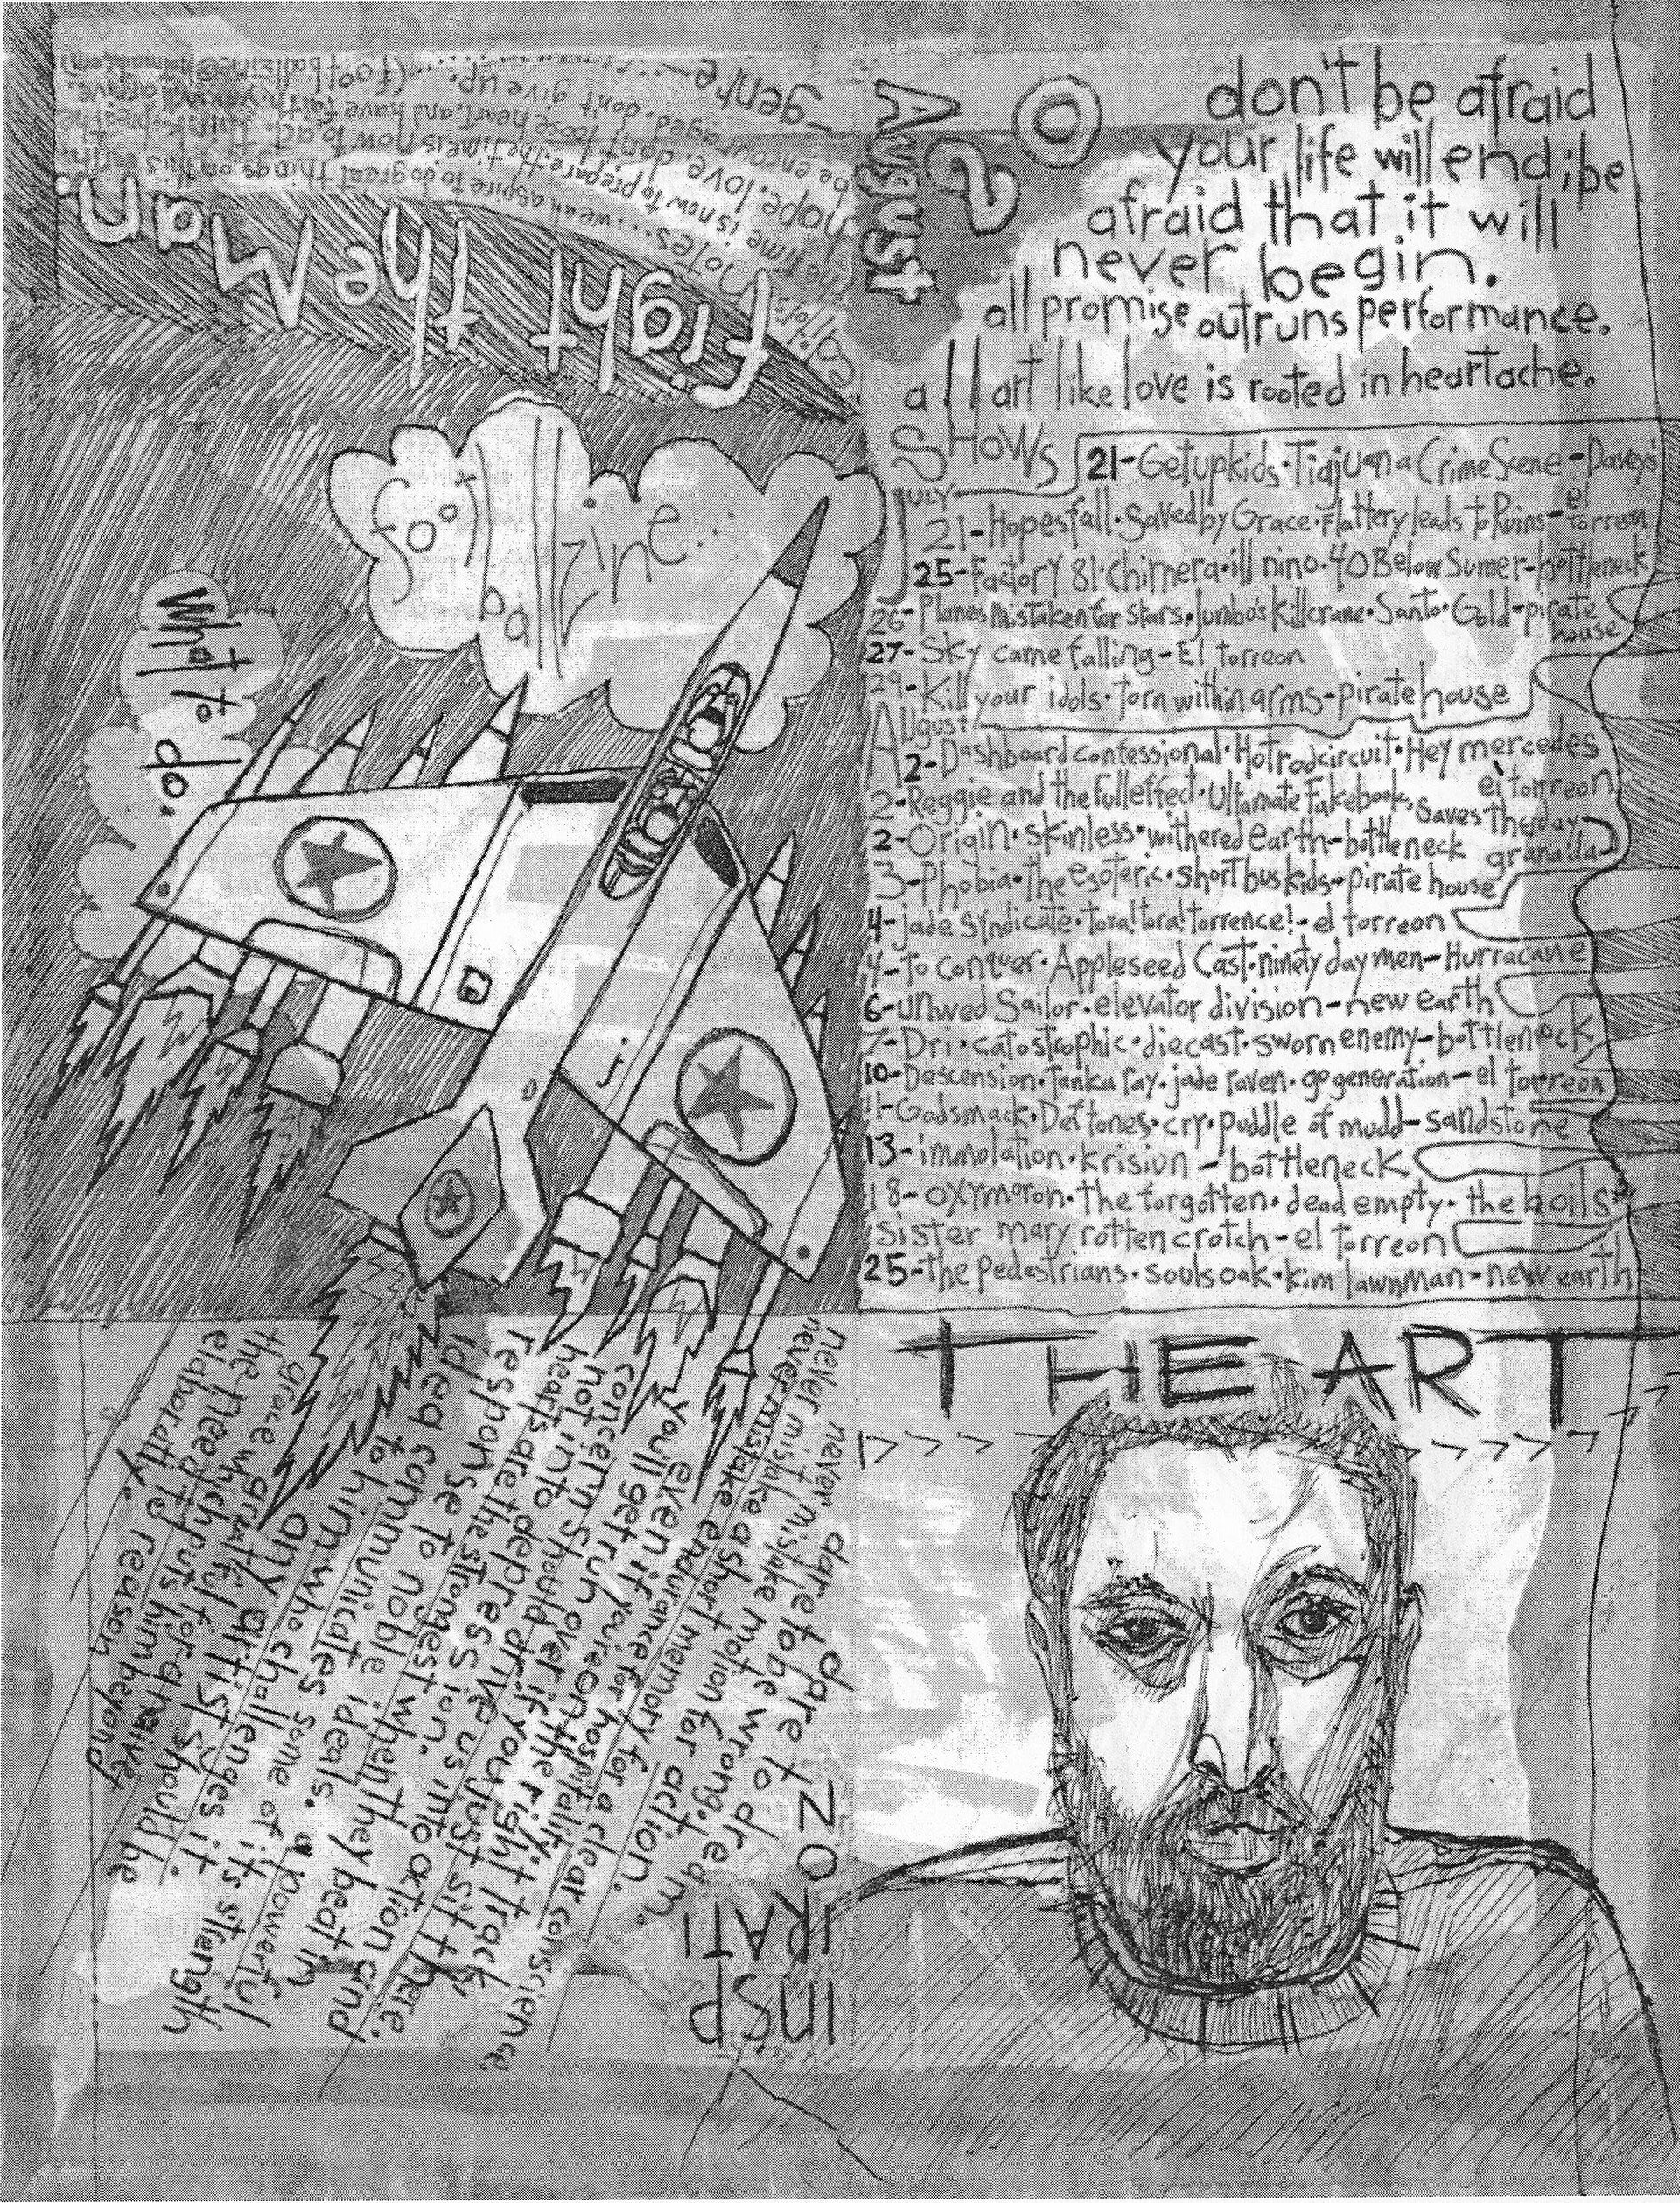 don't be afraid
your life will end; be
afraid that it will
never begin.
all promise outruns performance.
all art like love is rooted in heartache.
August
SHOWS
JULY
21-Getupkids·Tiajuana Crime Scene-Davey's
21-Hopesfall·Saved by Grace·Flattery leads to Ruins-el torreon
25-Factory 81·chimera·ill nino·40 Below Sumer-bottleneck
26-Planes Mistaken for Stars·Jumbo's Killcrane·Santo·Gold-pirate house
27-Sky came falling-El torreon
29-Kill your idols·torn within arms-pirate house
August
2-Dashboard confessional·Hotrodcircuit·Hey mercedes el torreon
2-Reggie and the fulleffect·Ultamate Fakebook·Saves the day-granada
2-Origin·skinless·withered earth-bottleneck
3-Phobia·the esoteric·short bus kids-pirate house
4-jade Syndicate·tora!tora!torrence!-el torreon
4-to conquer·Appleseed Cast·ninety day men-Hurracane
6-unwed Sailor·elevator division-new earth
7-Dri·catostrophic·diecast·sworn enemy-bottleneck
10-Descension·tanka ray·jade raven·go generation-el torreon
11-Godsmack·Deftones·cry·puddle of mudd-sandstone
13-immolation·krisiun-bottleneck
18-oxymoron·the forgotten·dead empty·the boils
sister mary rotten crotch-el torreon
25-the pedestrians·soulsoak·kim lawnman-new earth
THE ART
fight the Man.
editor's notes... we can aspire to do great things on this earth.
the time is now to prepare. the time is now to act. think. breathe.
hope. love. don't loose heart, and have faith. you will arrive.
be encouraged. don't give up. (footballzine@hotmail.com)
-genre-
foot
ball
zine
what to do.
j.
INSP
IRATI
ON
never dare to dare to
never mistake a short motion for action.
never mistake endurance for hospitality.
you'll even if you're on the right track
you'll get run over if you just sit there.
concern should drive us into action and
not into depression.
hearts are the strongest when they beat in
response to noble ideals. a powerful
idea communicates some of its strength
to him who challenges it.
any artist should be
grateful for a naive
grace which puts him beyond
the need to reason
elaboratly.